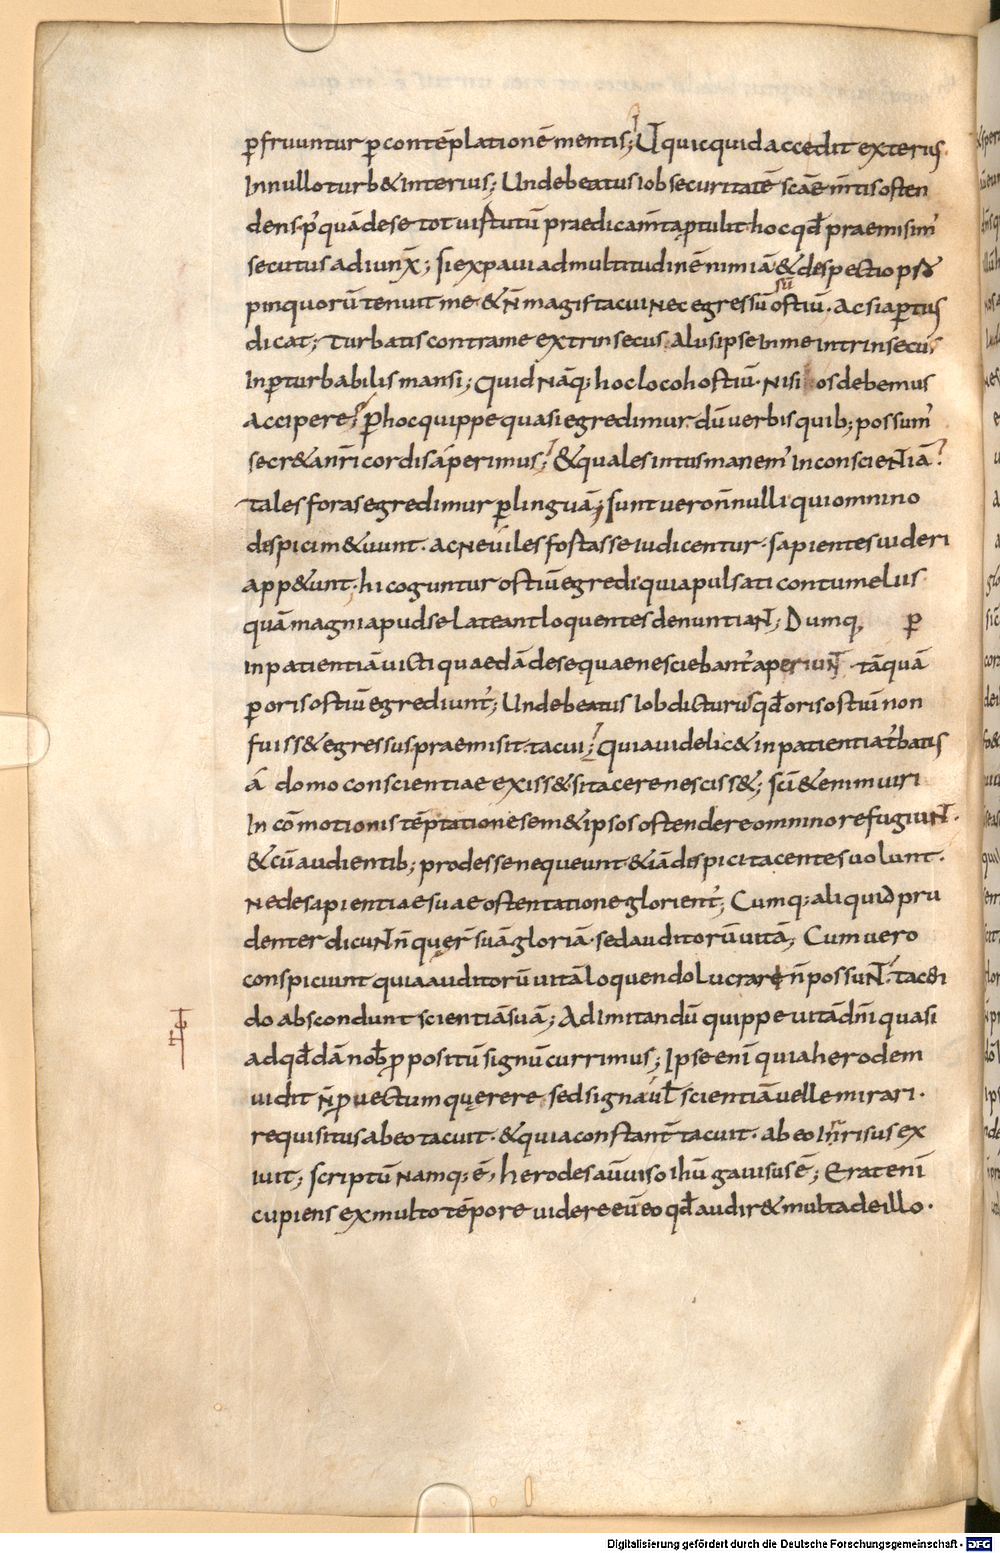 p̲fruuntur p̲ contēplationē mentis; Ut quicquid accedit exterius.
In nullo turb& interius; Unde beatus iob securitatē scāe m̄tis osten
dens. p̄ quā de se tot uirtutū praedicam̄ta p̲tulit hoc qđ praemisim'
secutus adiunx̄; si expaui ad multitudinē nimiā & despectio p̲
pinquorū terruit me & n̄ magis tacui nec egressus sū ostiū. Ac si ap̲tius
dicat; Turbatis contra me extrinsecus aliis ipse in me intrinsecus
Inp̲turbabilis mansi; Quid nāq; hoc loco hostiū. nisi os debemus
accipere? P̲ hoc quippe quasi egredimur. dū uerbis quib; possum'
secr&a nr̄i cordis ap̲erimus; & quales intus manem' in conscientiā?
tales foras egredimur p̲ linguā; sunt uero nn̄nulli qui omnino
despici m&uunt. ac ne uiles fortasse iudicentur. sapientes uideri
app&unt. hi coguntur ostiū egredi quia pulsati contumeliis
quā magni apud se lateant loquentes denuntiant; Dumq, p̲
inpatientiā uicti quaedā de se quae nesciebant' aperiunt tāquā
p̲ oris ostiū egrediunt'; Unde beatus Iob dicturus qđ oris ostiū non
fuiss& egressus praemisit. tacui; Quia uidelic& inpatientia t'batis
á domo conscientiae exiss& si tacere nesciss&; sc̄i & enim uiri
In cōmotionis tēptatione sem&ipsos ostendere omnino refugiunt.
& cū audientib; prodesse nequeunt & iā despici tacentes uolunt.
ne de sapientiae suae ostentatione glorient'; Cumq; aliquid pru
denter dicunt n̄ querunt suā gloriā. sed auditorū uitā; Cum uero
conspiciunt quia auditorū uitā loquendo lucrare n̄ possunt. tacen
do abscondunt scientiā suā; Ad imitandū quippe uitā dn̄i quasi
ad qđdā nob̄ p̲positū signū currimus; Ipse enī quia herodem
uidit n̄ p̲uectum querere sed signa uł scientiā uelle mirari.
requisitus ab eo tacuit. & quia constant̄ tacuit. ab eo inrisus ex
iuit; scriptū namq; ē; herodes aūuiso ihū gauisus ē; Erat enī
cupiens ex multo tēpore uidere eū eo qđ audir& multa de illo.